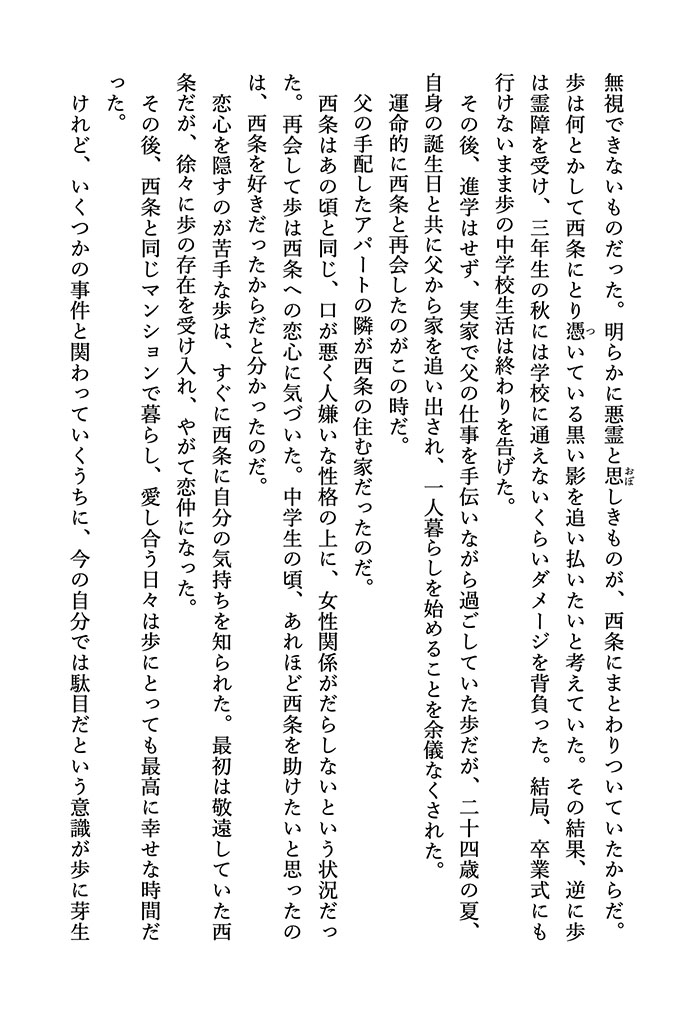 無視できないものだった。明らかに悪霊と思しきものが、西条にまとわりついていたからだ。
歩は何とかして西条にとり憑いている黒い影を追い払いたいと考えていた。その結果、逆に歩
は霊障を受け、三年生の秋には学校に通えないくらいダメージを背負った。結局、卒業式にも
行けないまま歩の中学校生活は終わりを告げた。
その後、進学はせず、実家で父の仕事を手伝いながら過ごしていた歩だが、二十四歳の夏、
自身の誕生日と共に父から家を追い出され、一人暮らしを始めることを余儀なくされた。
運命的に西条と再会したのがこの時だ。
父の手配したアパートの隣が西条の住む家だったのだ。
西条はあの頃と同じ、口が悪く人嫌いな性格の上に、女性関係がだらしないという状況だっ
た。再会して歩は西条への恋心に気づいた。中学生の頃、あれほど西条を助けたいと思ったの
は、西条を好きだったからだと分かったのだ。
恋心を隠すのが苦手な歩は、すぐに西条に自分の気持ちを知られた。最初は敬遠していた西
条だが、徐々に歩の存在を受け入れ、やがて恋仲になった。
その後、西条と同じマンションで暮らし、愛し合う日々は歩にとっても最高に幸せな時間だ
った。
けれど、いくつかの事件と関わっていくうちに、今の自分では駄目だという意識が歩に芽生